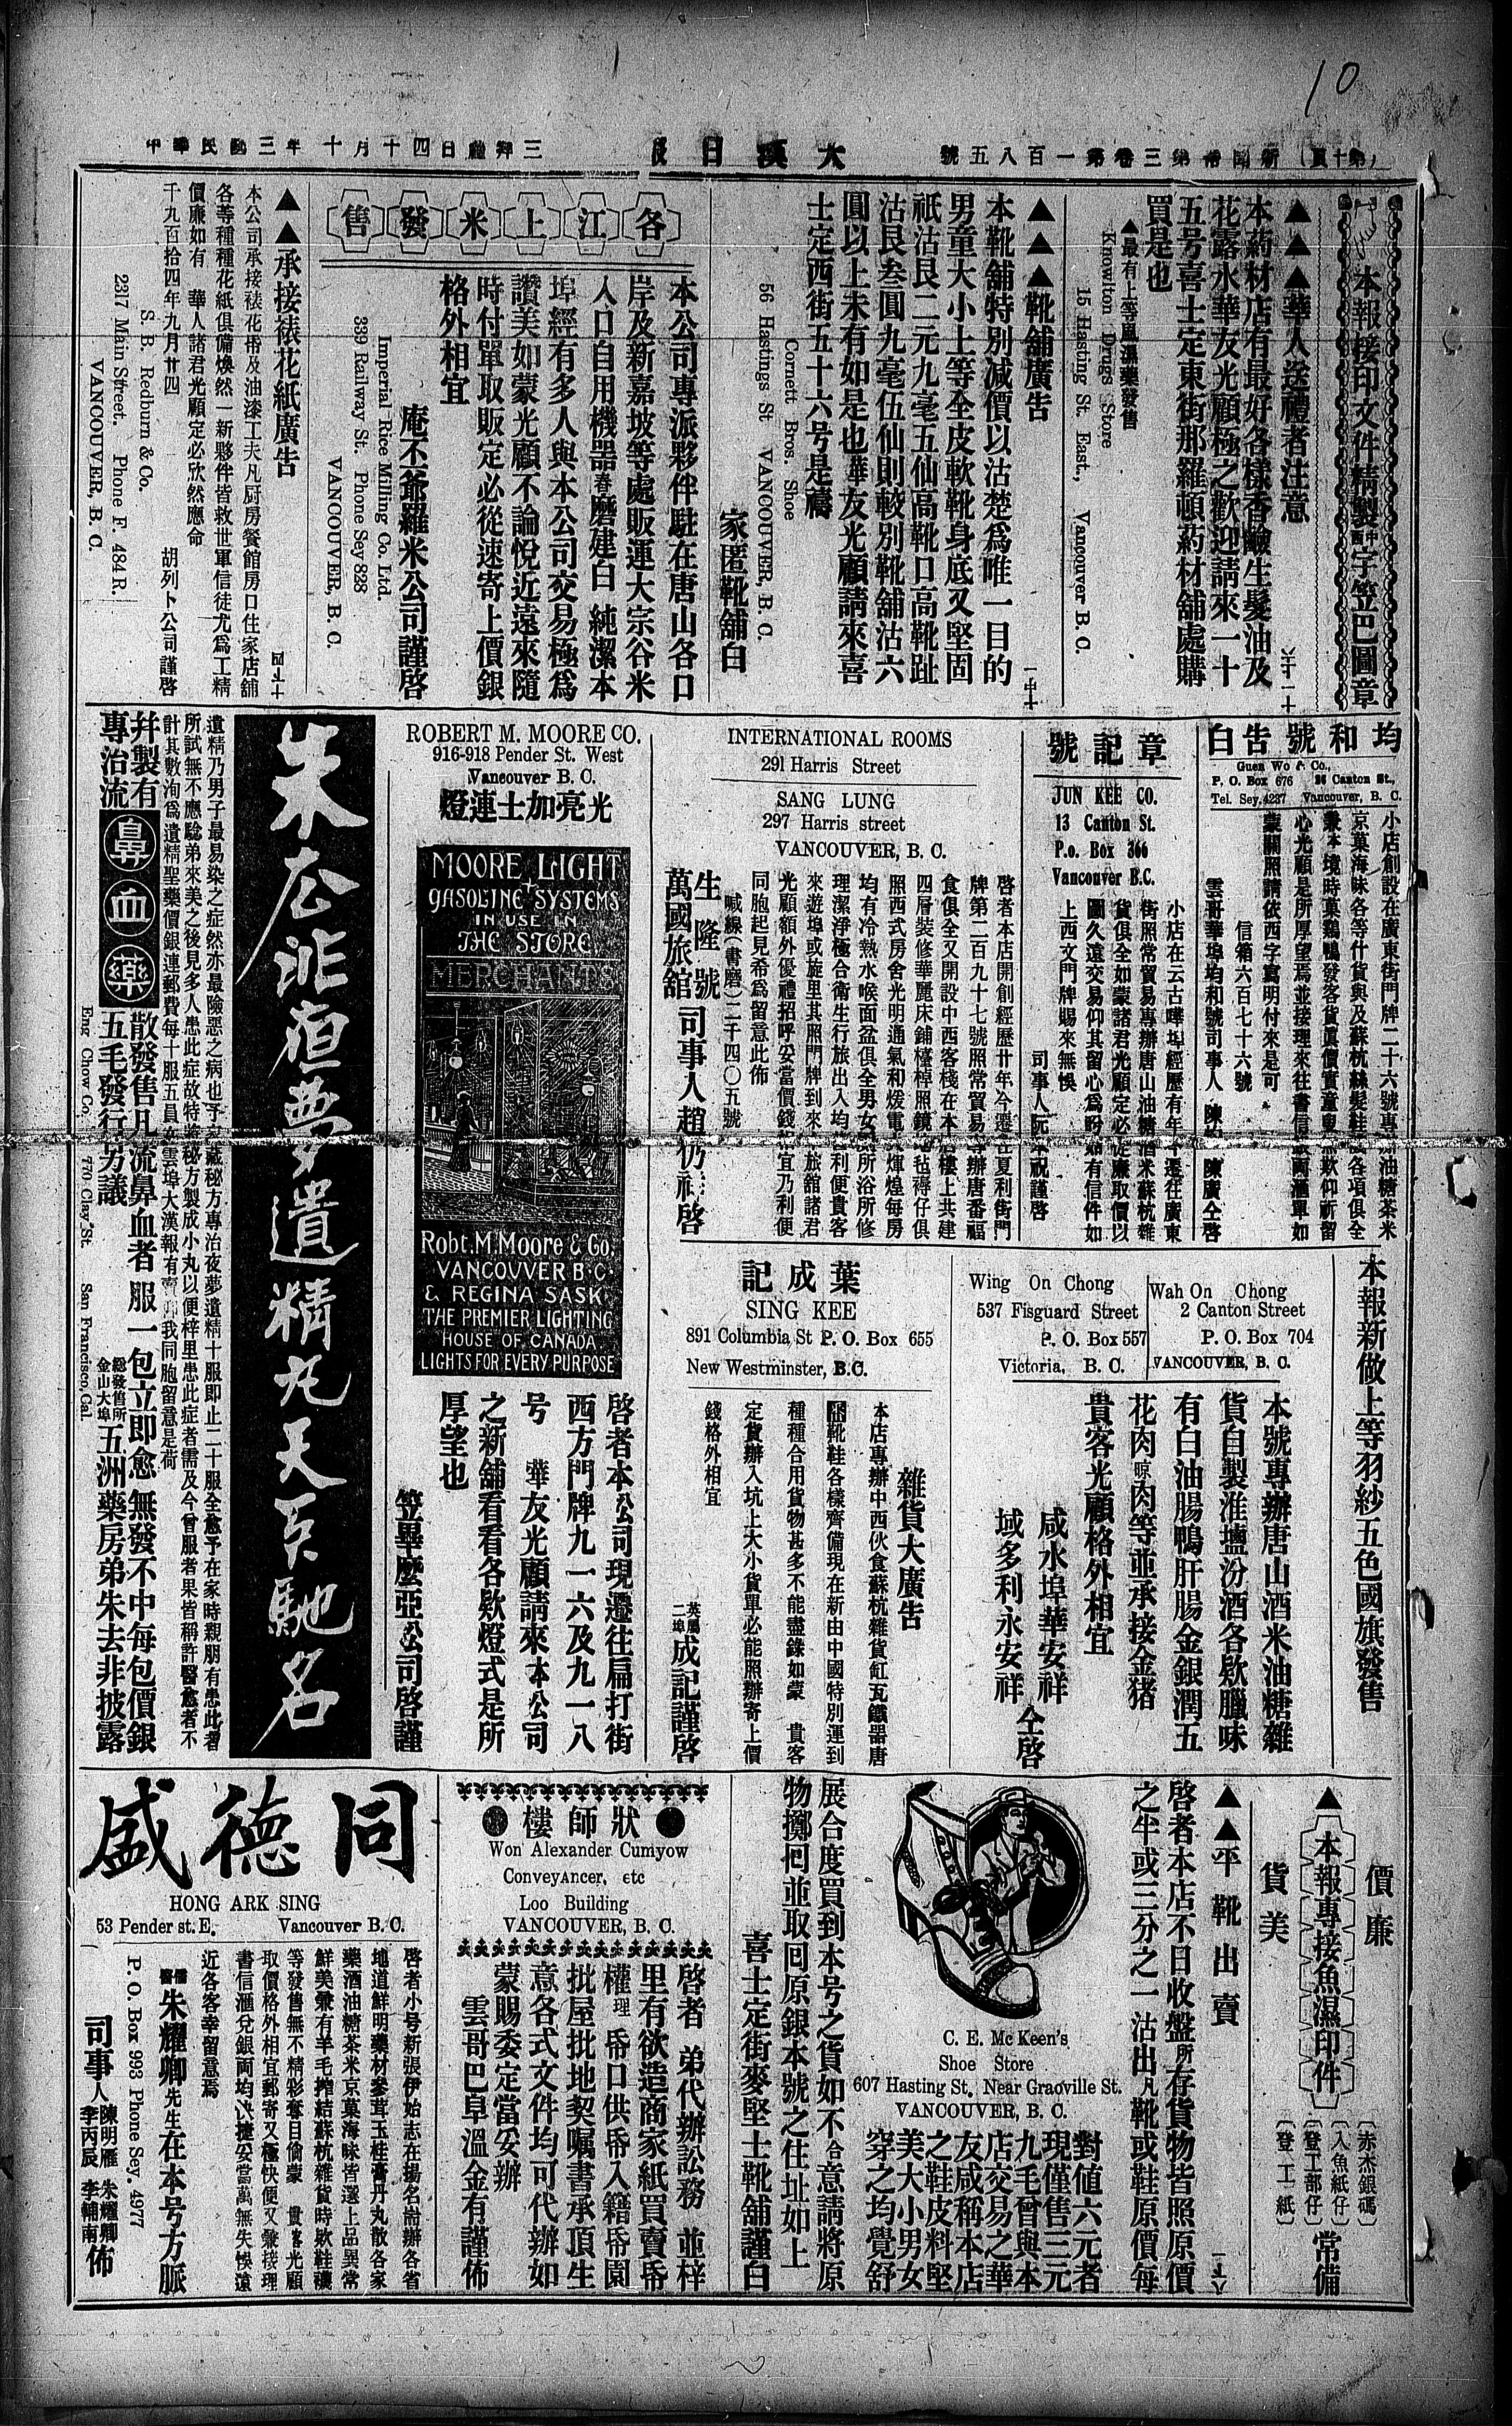 10
（第十頁） 新聞常第三卷第一百八五號
大漢日報
三拜禮日四十月十年三國民華中
本報接印文件精製中西字笠巴圖章
▲▲▲華人送禮者注意
本葯材店有最好各樣香鹼生髮油及
花露水華友光顧極之歡迎請來一十
五号喜士定東街那羅頓葯材舖處購
買是也
▲最有上等風濕藥發售
Knowlton Drugs Store
15 Hasting St. East, Vancouver B.C.
▲▲▲靴舖廣告
本靴舖特別減價以沽楚爲唯一目的
男童大小上等全皮軟靴身底又堅固
祇沽艮二元九毫五仙高靴口高靴趾
沽艮叁圓九毫伍仙則較別靴舖沽六
圓以上未有如是也華友光顧請來喜
士定西街五十六号是禱
Cornett Bros. Shoe
56 Hastings St VANCOUVER, B. C.
家匿靴舖白
各江上米發售
本公司專派夥伴駐在唐山各口
岸及新嘉坡等處販運大宗谷米
入口自用機器舂磨建白純潔本
埠經有多人與本公司交易極爲
讚美如蒙光顧不論悅近遠來隨
時付單取販定必從速寄上價銀
格外相宜
庵丕爺羅米公司謹啓
Imperial Rice Milling Co. Ltd.
339 Railway St. Phone Sey 823
VANCOUVER, B. C.
▲▲承接裱花紙廣告
本公司承接裱花帋及油漆工夫凡厨房餐館房口住家店舖
各等種種花紙俱備煥然一新夥伴皆救世軍信徒尤爲工精
價廉如有 華人諸君光顧定必欣然應命
千九百拾四年九月廿四 胡列卜公司謹啓
S. B. Redburn & Co.
2317 Main Street. Phone F. 484 R.
VANCOUVER, B. C.
均和號告白
Guen Wo & Co.,
P. O. Box 676 26 Canton St.,
Tel. Sey. 4237 Vancouver, B. C.
小店創設在廣東街門牌二十六號專辦油糖茶米
京菓海味各等什貨與及蘇杭絲髮鞋襪各項俱全
兼本境時菓鷄鴨發客貨眞價實童叟無欺仰祈留
心光顧是所厚望焉並接理來往書信銀両滙單如
蒙關照請依西字寫明付來是可
信箱六百七十六號
章記號
JUN KEE CO.
13 Canton St.
P.o. Box 366
Vancouver B.C.
小店在云古嘩埠經歷有年今遷往廣東
街照常貿易專辦唐山油糖酒米蘇杭雜
貨俱全如蒙諸君光顧定必從廉取價以
圖久遠交易仰其留心爲盼如有信件如
上西文門牌賜來無悞
INTERNATIONAL ROOMS
291 Harris Street
SANG LUNG
297 Harris street
VANCOUVER, B. C.
啓者本店開創經歷廿年今遷在夏利街門
牌第二百九十七號照常貿易專辦唐番福
食俱全又開設中西客棧在本店樓上共建
四層裝修華麗床鋪檯椅照鏡地毡褥仔俱
照西式房舍光明通氣和煖電火煇煌每房
均有冷熱水喉面盆俱全男女厠所浴所修
理潔淨極合衛生行旅出入均甚利便貴客
來遊埠或旋里其照門牌到來本旅舘諸君
光顧額外優禮招呼妥當價錢相宜乃利便
同胞起見希爲留意此佈
喊線（書磨）二千四〇五號
生隆號
萬國旅舘
司事人趙仍祥啓
ROBERT M. MOORE CO.
916-918 Pender St. West
Vancouver B. C.
光亮加士連燈
MOORE LIGHT
GASOLINE SYSTEMS
IN USE IN
THE STORE
MERCHANTS
Robt. M. Moore & Co.
VANCOUVER B.C.
& REGINA SASK.
THE PREMIER LIGHTING
HOUSE OF CANADA
LIGHTS FOR EVERY PURPOSE
啓者本公司現遷往扁打街
西方門牌九一六及九一八
号 華友光顧請來本公司
之新舖看看各欵燈式是所
厚望也
笠畢麼亞公司啓謹
朱広非夜夢遺精丸天下馳名
遺精乃男子最易染之症然亦最險惡之病也予家藏秘方專治夜夢遺精十服即止二十服全愈予在家時親朋有患此者
所試無不應驗弟來美之後見多人患此症故特將秘方製成小丸以便梓里患此症者需及今曾服者果皆稱許醫愈者不
計其數洵爲遺精聖藥價銀連郵費每十服五員
并製有
專治流
鼻血藥
散發售凡流鼻血者服一包立即愈無發不中每包價銀
五毛發行另議
総發售所金山大埠五洲藥房弟朱去非披露
Eng Chow Co. 770 Clay St. San Francisco, Cal.
本報新做上等羽紗五色國旗發售
Wah On Chong
2 Canton Street
P. O. Box 704
VANCOUVER, B. C.
Wing On Chong
537 Fisguard Street
P. O. Box 557
Victoria, B. C.
本號專辦唐山酒米油糖雜
貨自製淮鹽汾酒各欵臘味
有白油腸鴨肝腸金銀潤五
花肉晾肉等並承接金猪
貴客光顧格外相宜
咸水埠華安祥
域多利永安祥
仝啓
葉成記
SING KEE
891 Columbia St P. O. Box 655
New Westminster, B.C.
雜貨大廣告
本店專辦中西伙食蘇杭雜貨缸瓦鐵器唐
靴鞋各樣齊備現在新由中國特別運到
種種合用貨物甚多不能盡錄如蒙 貴客
定貨辦入坑上大小貨單必能照辦寄上價
錢格外相宜
英屬二埠成記謹啓
價廉
▲本報專接魚濕印件
貨美
（赤杰銀碼）
（入魚紙仔）
（登工部仔）
（登工紙）
常備
▲▲平靴出賣
啓者本店不日收盤所存貨物皆照原價
之半或三分之一沽出凡靴或鞋原價每
對值六元者
現僅售三元
九毛曾與本
店交易之華
友咸稱本店
之鞋皮料堅
美大小男女
穿之均覺舒
C. E. Mc Keen's
Shoe Store
607 Hasting St. Near Graoville St.
VANCOUVER, B. C.
展合度買到本号之貨如不合意請將原
物擲囘並取囘原銀本號之住址如上
喜士定街麥堅士靴舖謹白
狀師樓
Won Alexander Cumyow
Conveyancer, etc
Loo Building
VANCOUVER, B. C.
啓者 弟代辦訟務 並梓
里有欲造商家紙買賣帋
權理帋口供帋入籍帋園
批屋批地契嘱書承頂生
意各式文件均可代辦如
蒙賜委定當妥辦
雲哥巴阜溫金有謹佈
同德盛
HONG ARK SING
53 Pender st. E. Vancouver B. C.
啓者小号新張伊始志在揚名耑辦各省
地道鮮明藥材參茸玉桂膏丹丸散各家
藥酒油糖茶米京菓海味皆選上品異常
鮮美兼有羊毛搾結蘇杭雜貨時欵鞋襪
等發售無不精彩奪目倘蒙 貴客光顧
取價格外相宜郵寄又極快便又兼接理
書信滙兌銀両均快捷妥當萬無失悞遠
近各客幸留意焉
儒醫朱耀卿先生在本号方脈
P. O. Box 993 Phone Sey. 4977
司事人陳明雁 朱耀卿 李丙辰 李輔南佈